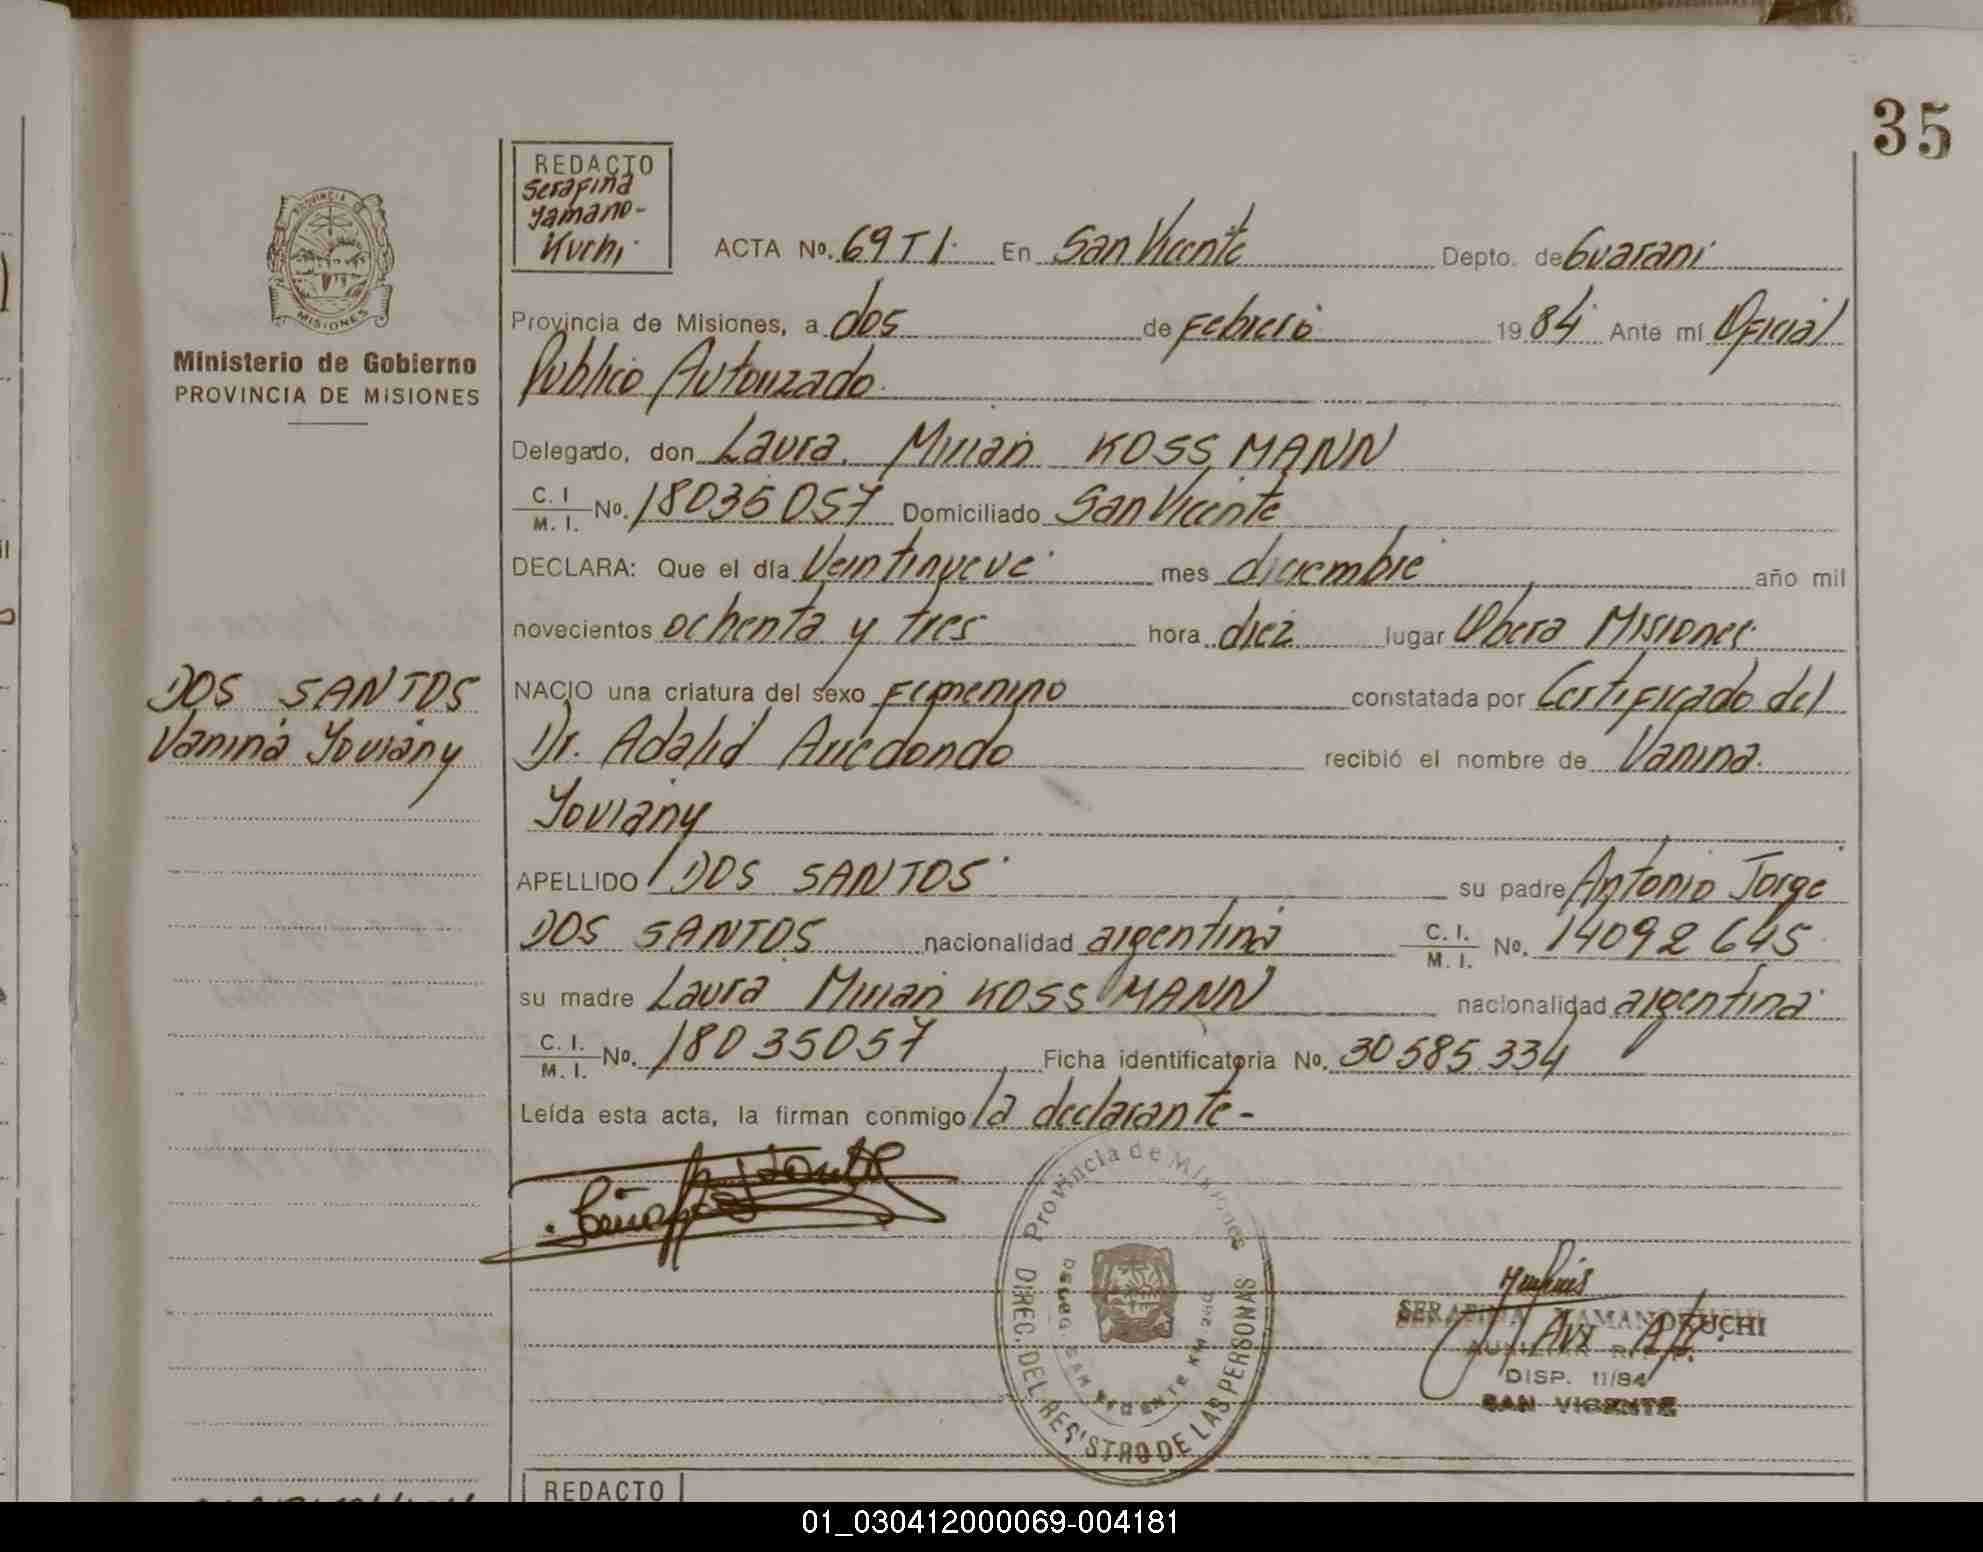 35
REDACTO
Serafina
Yamano-
Kuchi
ACTA No. 69 T I. En San Vicente Depto. de Guarani
Provincia de Misiones, a dos de Febrero 1984 Ante mí Oficial
Publico Autorizado.
PROVINCIA DE
MISIONES
Ministerio de Gobierno
PROVINCIA DE MISIONES
Delegado, don Laura Mirian KOSSMANN
C. I.
M. I. No. 18035057 Domiciliado San Vicente
DECLARA: Que el día Veintinueve mes diciembre año mil
novecientos ochenta y tres hora diez lugar Obera Misiones
NACIO una criatura del sexo Femenino constatada por Certificado del
DOS SANTOS
Vanina Yoviany
Dr. Adalid Arredondo recibió el nombre de Vanina
Yoviany
APELLIDO DOS SANTOS su padre Antonio Jorge
DOS SANTOS nacionalidad argentina C. I. M. I. No. 14092645
su madre Laura Mirian KOSSMANN nacionalidad argentina
C. I.
M. I. No. 18035057 Ficha identificatoria No. 30585.334
Leída esta acta, la firman conmigo la declarante-
Provincia de Misiones
DIREC. DEL REGISTRO DE LAS PERSONAS
SERAFINA YAMANOKUCHI
AUXILIAR
DISP. 11/84
SAN VICENTE
REDACTO
01_030412000069-004181